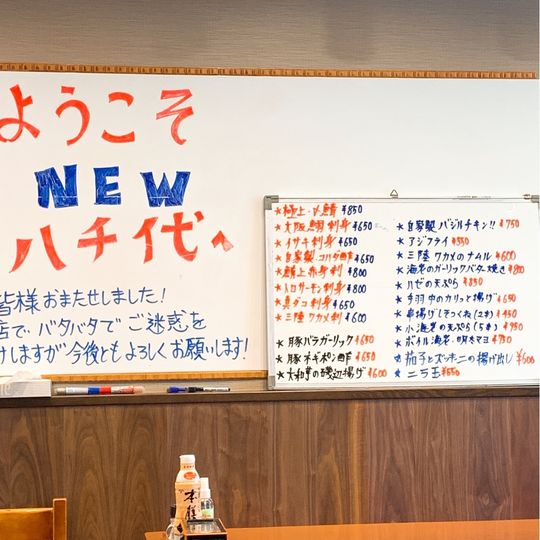 ようこそ
NEW
ハチイ代へ
皆様おまたせしました!
店で、バタバタでご迷惑を
けしますが今後ともよろしくお願いします!
★極上〆鯖 ¥850
★大阪鯛刺身 ¥650
★イサキ刺身 ¥650
★自家製コハダ酢 ¥650
★鮪上赤身刺 ¥800
★トロサーモン刺身 ¥800
★真ダコ刺身 ¥650
★三陸ワカメ刺 ¥600
★豚バラガーリック ¥650
★豚ネギポン酢 ¥650
★大和芋の磯辺揚げ ¥600
★自家製バジルチキン!! ¥750
★アジフライ ¥550
★三陸ワカメのナムル ¥600
★海老のガーリックバター焼き ¥800
★ハゼの天ぷら ¥850
★手羽中のカリッと揚げ ¥650
★串揚げしそつくね(2本) ¥450
★小海老の天ぷら(5本) ¥750
★ボイル海老・明太マヨ ¥750
★茄子とズッキーニの揚げ出し ¥600
★ニラ玉 ¥550
本